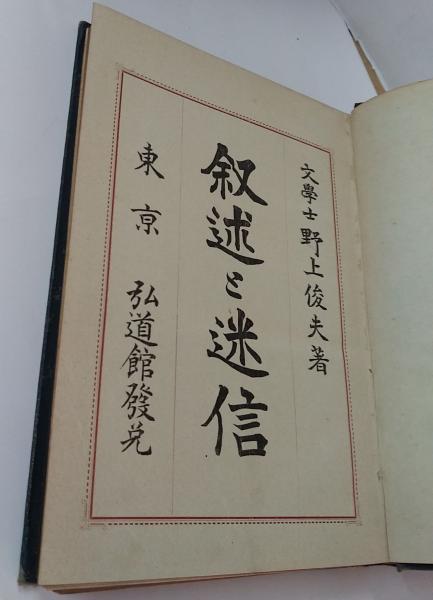 文學士 野上俊夫著
叙述と迷信
東京 弘道館發兌